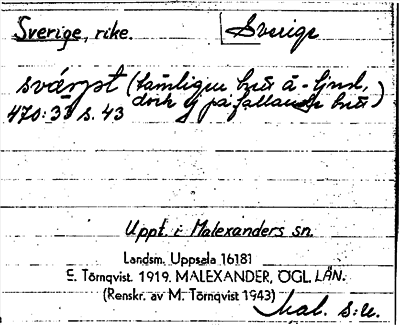 Sverige, rike.
Sverige
svárpt (tämligen brett ā-ljud,
470:33 s. 43 dock ej påfallande brett)
Uppt. i Malexanders sn.
Landsm. Uppsala 16181
E. Törnqvist. 1919. MALEXANDER, ÖGL. LÄN.
(Renskr. av M. Törnqvist 1943)
Mal. s:n.